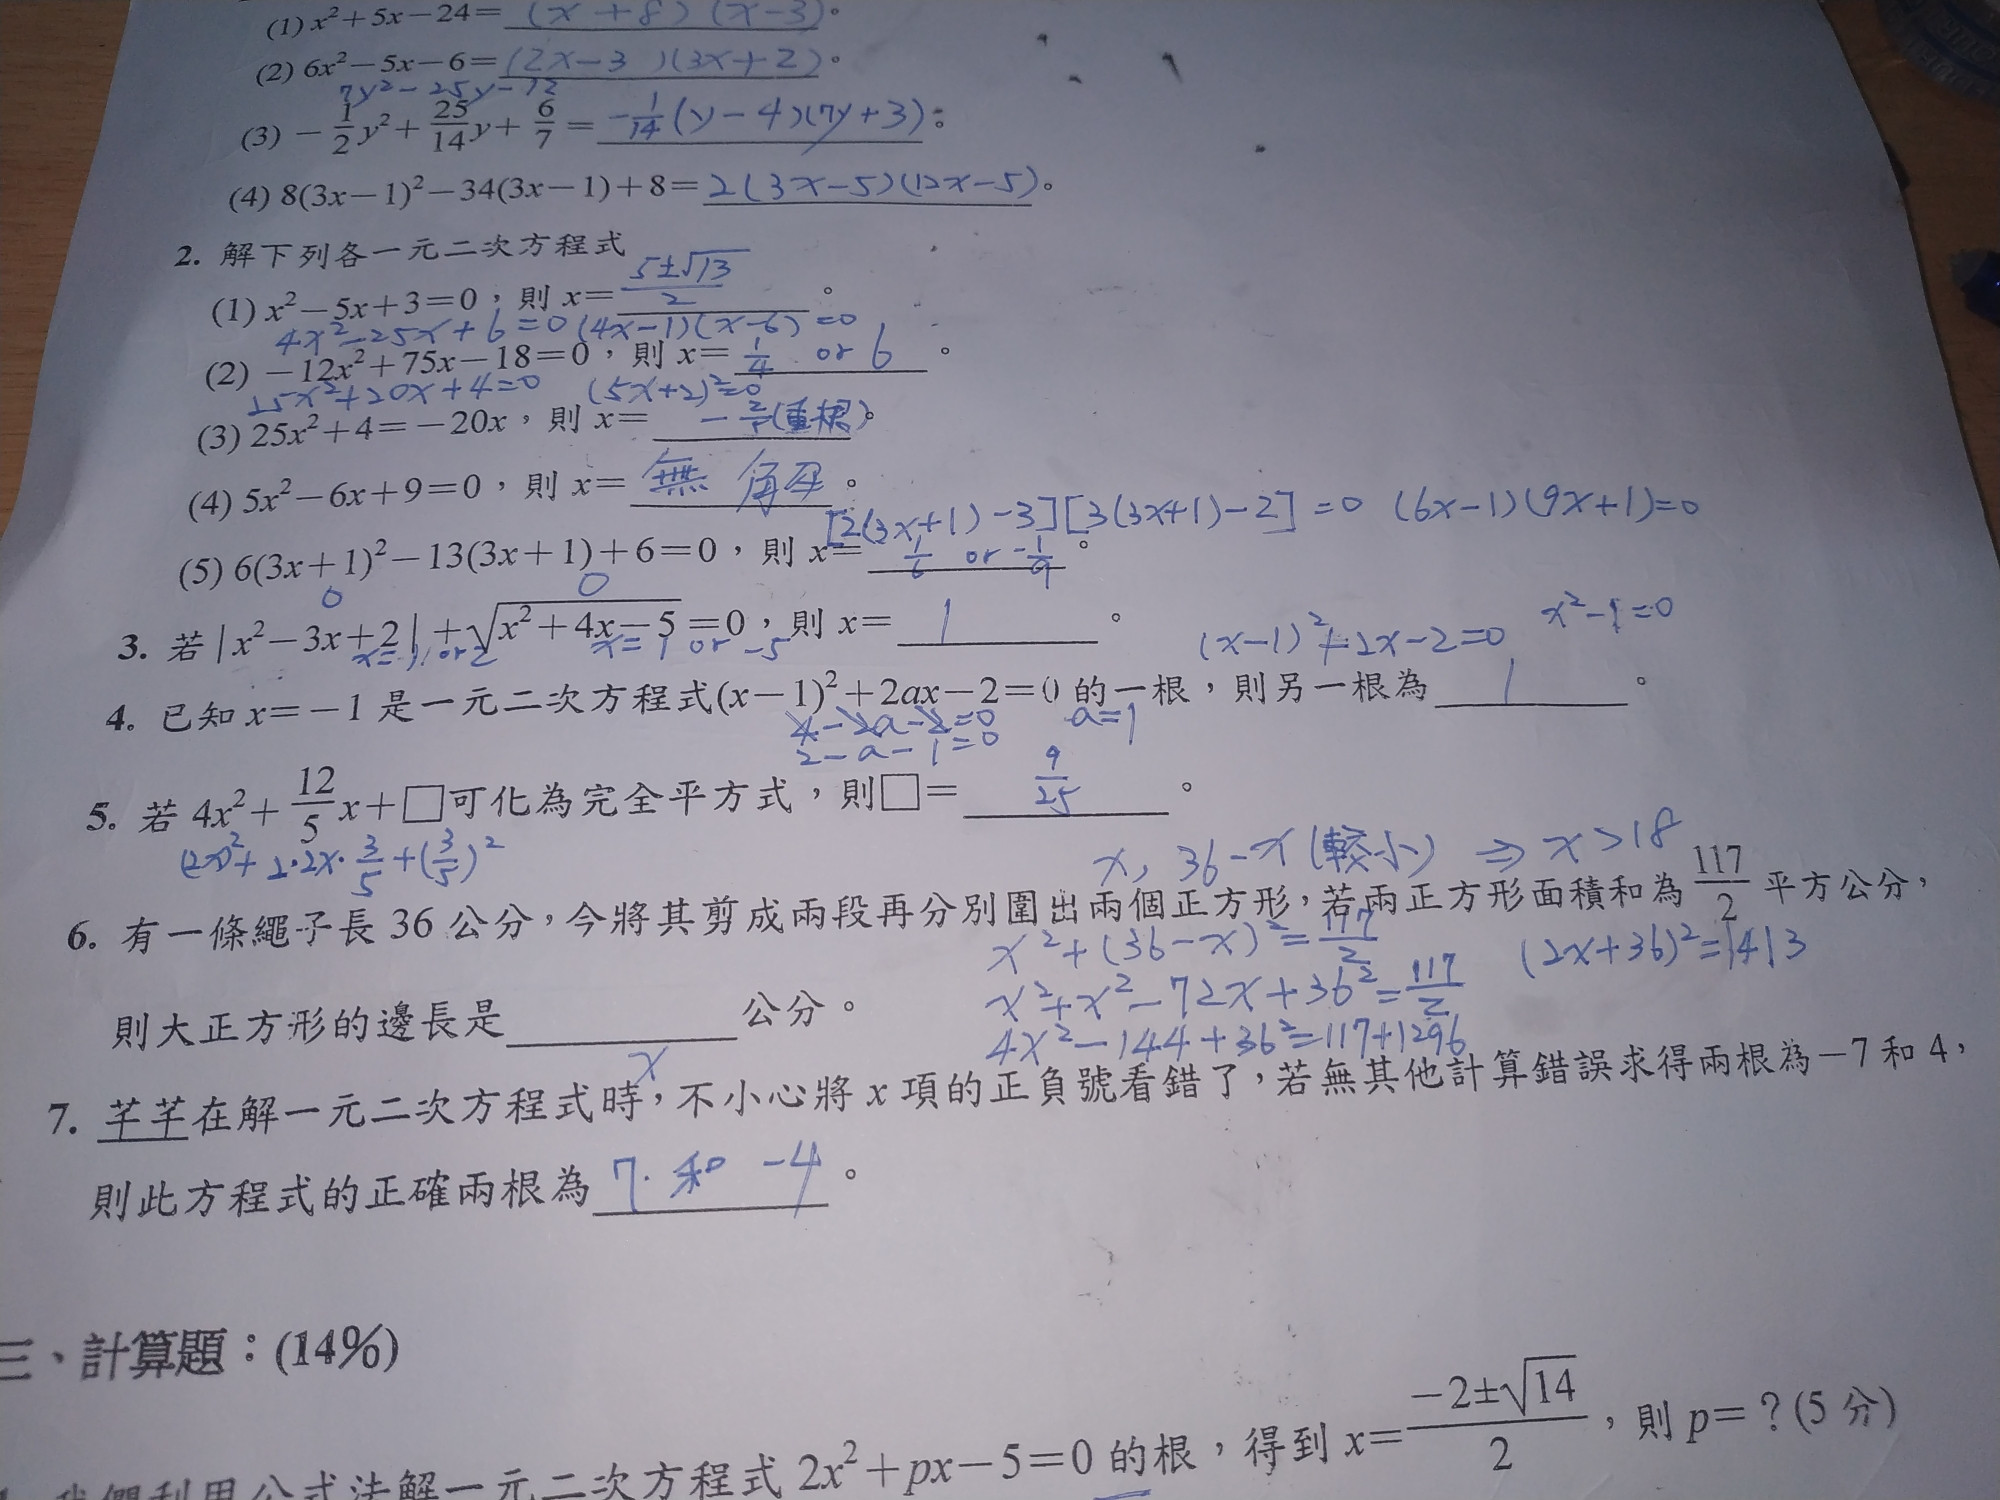 (1) x²+5x−24= (x+8)(x−3)。
(2) 6x²−5x−6= (2x−3)(3x+2)。
7y²−25y−12
(3) −1/2 y²+25/14 y+6/7= −1/14(y−4)(7y+3)。
(4) 8(3x−1)²−34(3x−1)+8= 2(3x−5)(12x−5)。
2. 解下列各一元二次方程式
(1) x²−5x+3=0，則 x= (5±√13)/2。
4x²−25x+6=0 (4x−1)(x−6)=0
(2) −12x²+75x−18=0，則 x= 1/4 or 6。
25x²+20x+4=0 (5x+2)²=0
(3) 25x²+4=−20x，則 x= −2/5(重根)。
(4) 5x²−6x+9=0，則 x= 無解。
[2(3x+1)−3][3(3x+1)−2]=0 (6x−1)(9x+1)=0
(5) 6(3x+1)²−13(3x+1)+6=0，則 x= 1/6 or −1/9。
0 0
3. 若|x²−3x+2|+√(x²+4x−5)=0，則 x= 1。
x=1 or 2 x=1 or −5
(x−1)²+2x−2=0 x²−1=0
4. 已知 x=−1 是一元二次方程式(x−1)²+2ax−2=0 的一根，則另一根為 1。
4−2a−2=0 a=1
2−a−1=0
5. 若 4x²+12/5 x+□可化為完全平方式，則□= 9/25。
(2x)²+2·2x·3/5+(3/5)²
x, 36−x(較小) ⇒ x>18
6. 有一條繩子長 36 公分，今將其剪成兩段再分別圍出兩個正方形，若兩正方形面積和為 117/2 平方公分，
x²+(36−x)²=117/2 (2x+36)²=1413
x²+x²−72x+36²=117/2
則大正方形的邊長是 公分。
4x²−144+36²=117+1296
x
7. 芊芊在解一元二次方程式時，不小心將 x 項的正負號看錯了，若無其他計算錯誤求得兩根為−7 和 4，
則此方程式的正確兩根為 7. 和 −4。
三、計算題：(14%)
我們利用公式法解一元二次方程式 2x²+px−5=0 的根，得到 x=(−2±√14)/2，則 p=？(5 分)